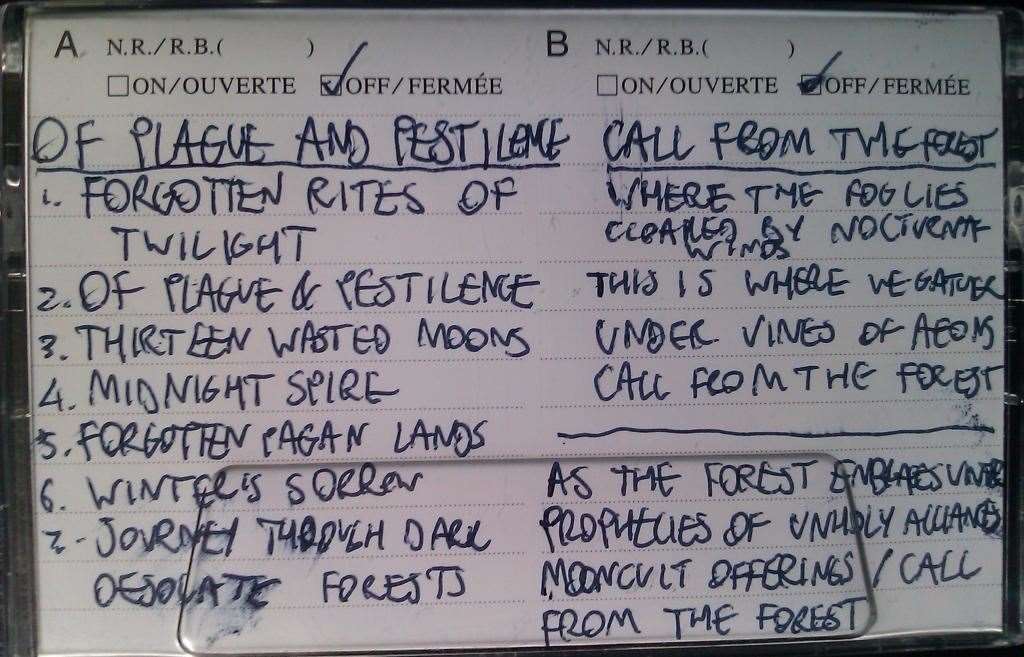 A N.R./R.B.( )
ON/OUVERTE OFF/FERMÉE
OF PLAGUE AND PESTILENCE
1. FORGOTTEN RITES OF
TWILIGHT
2. OF PLAGUE & PESTILENCE
3. THIRTEEN WASTED MOONS
4. MIDNIGHT SPIRE
5. FORGOTTEN PAGAN LANDS
6. WINTER'S SORROW
7- JOURNEY THROUGH DARK
DESOLATE FORESTS
B N.R./R.B.( )
ON/OUVERTE OFF/FERMÉE
CALL FROM THE FOREST
WHERE THE FOG LIES
BY NOCTURNAL
WINDS
THIS IS WHERE WE GATHER
UNDER VINES OF AEONS
CALL FROM THE FOREST
AS THE FOREST WINTER
PROPHECIES OF UNHOLY ALLIANCES
MOONCULT OFFERINGS / CALL
FROM THE FOREST